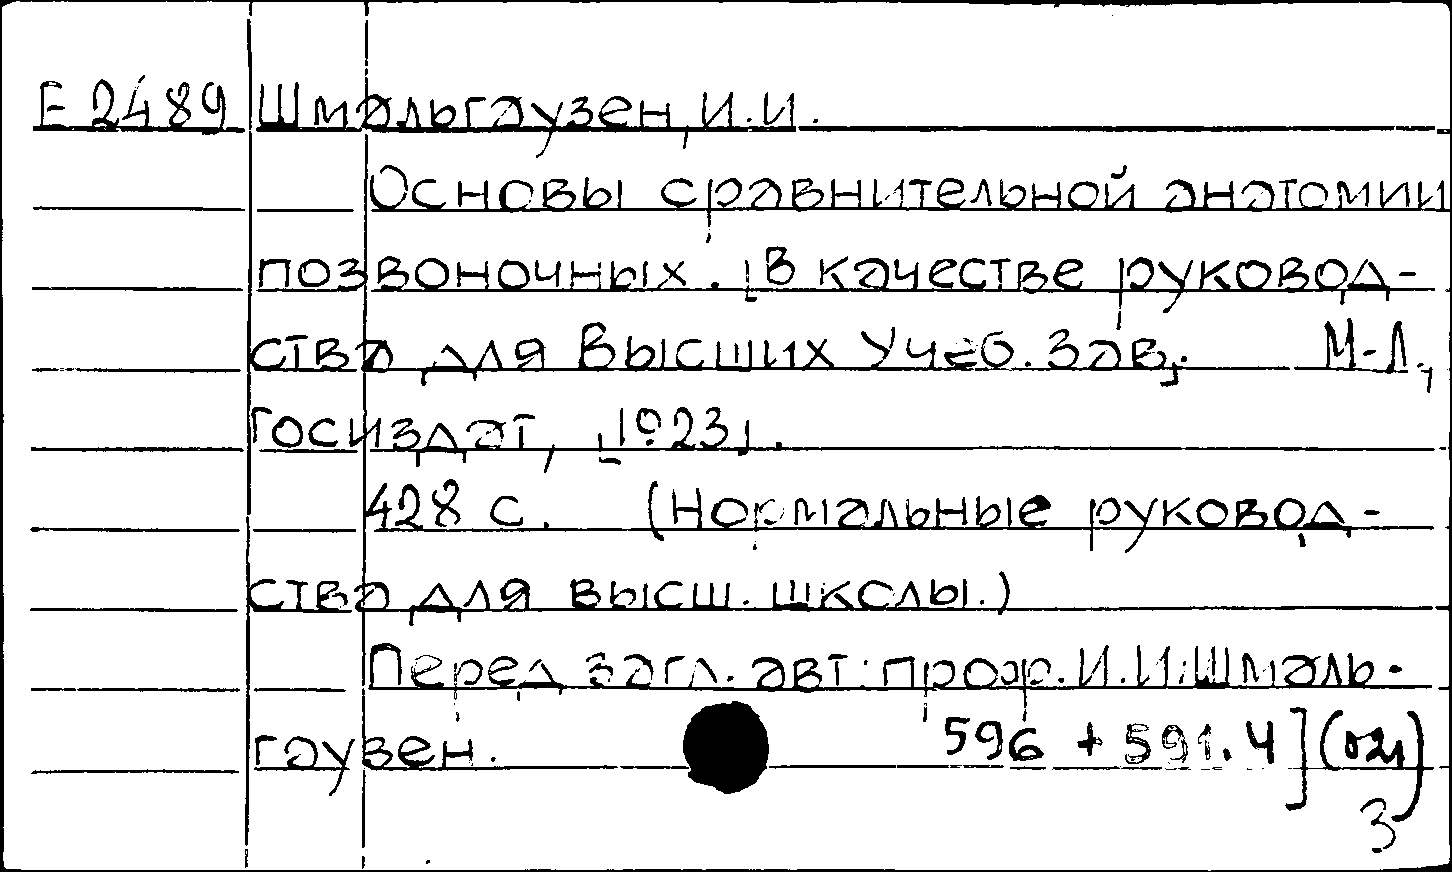 Е 2489 Шмальгаузен, И.И.
Основы сравнительной анатомии
позвоночных. [В качестве руковод-
ства для Высших Учеб. Зав.]. М-Л.,
Госиздат, [1923].
428 с. (Нормальные руковод-
ства для высш. школы.)
Перед загл. авт: проф. И.И.Шмаль-
гаузен.
596 + 591.4](021)
3